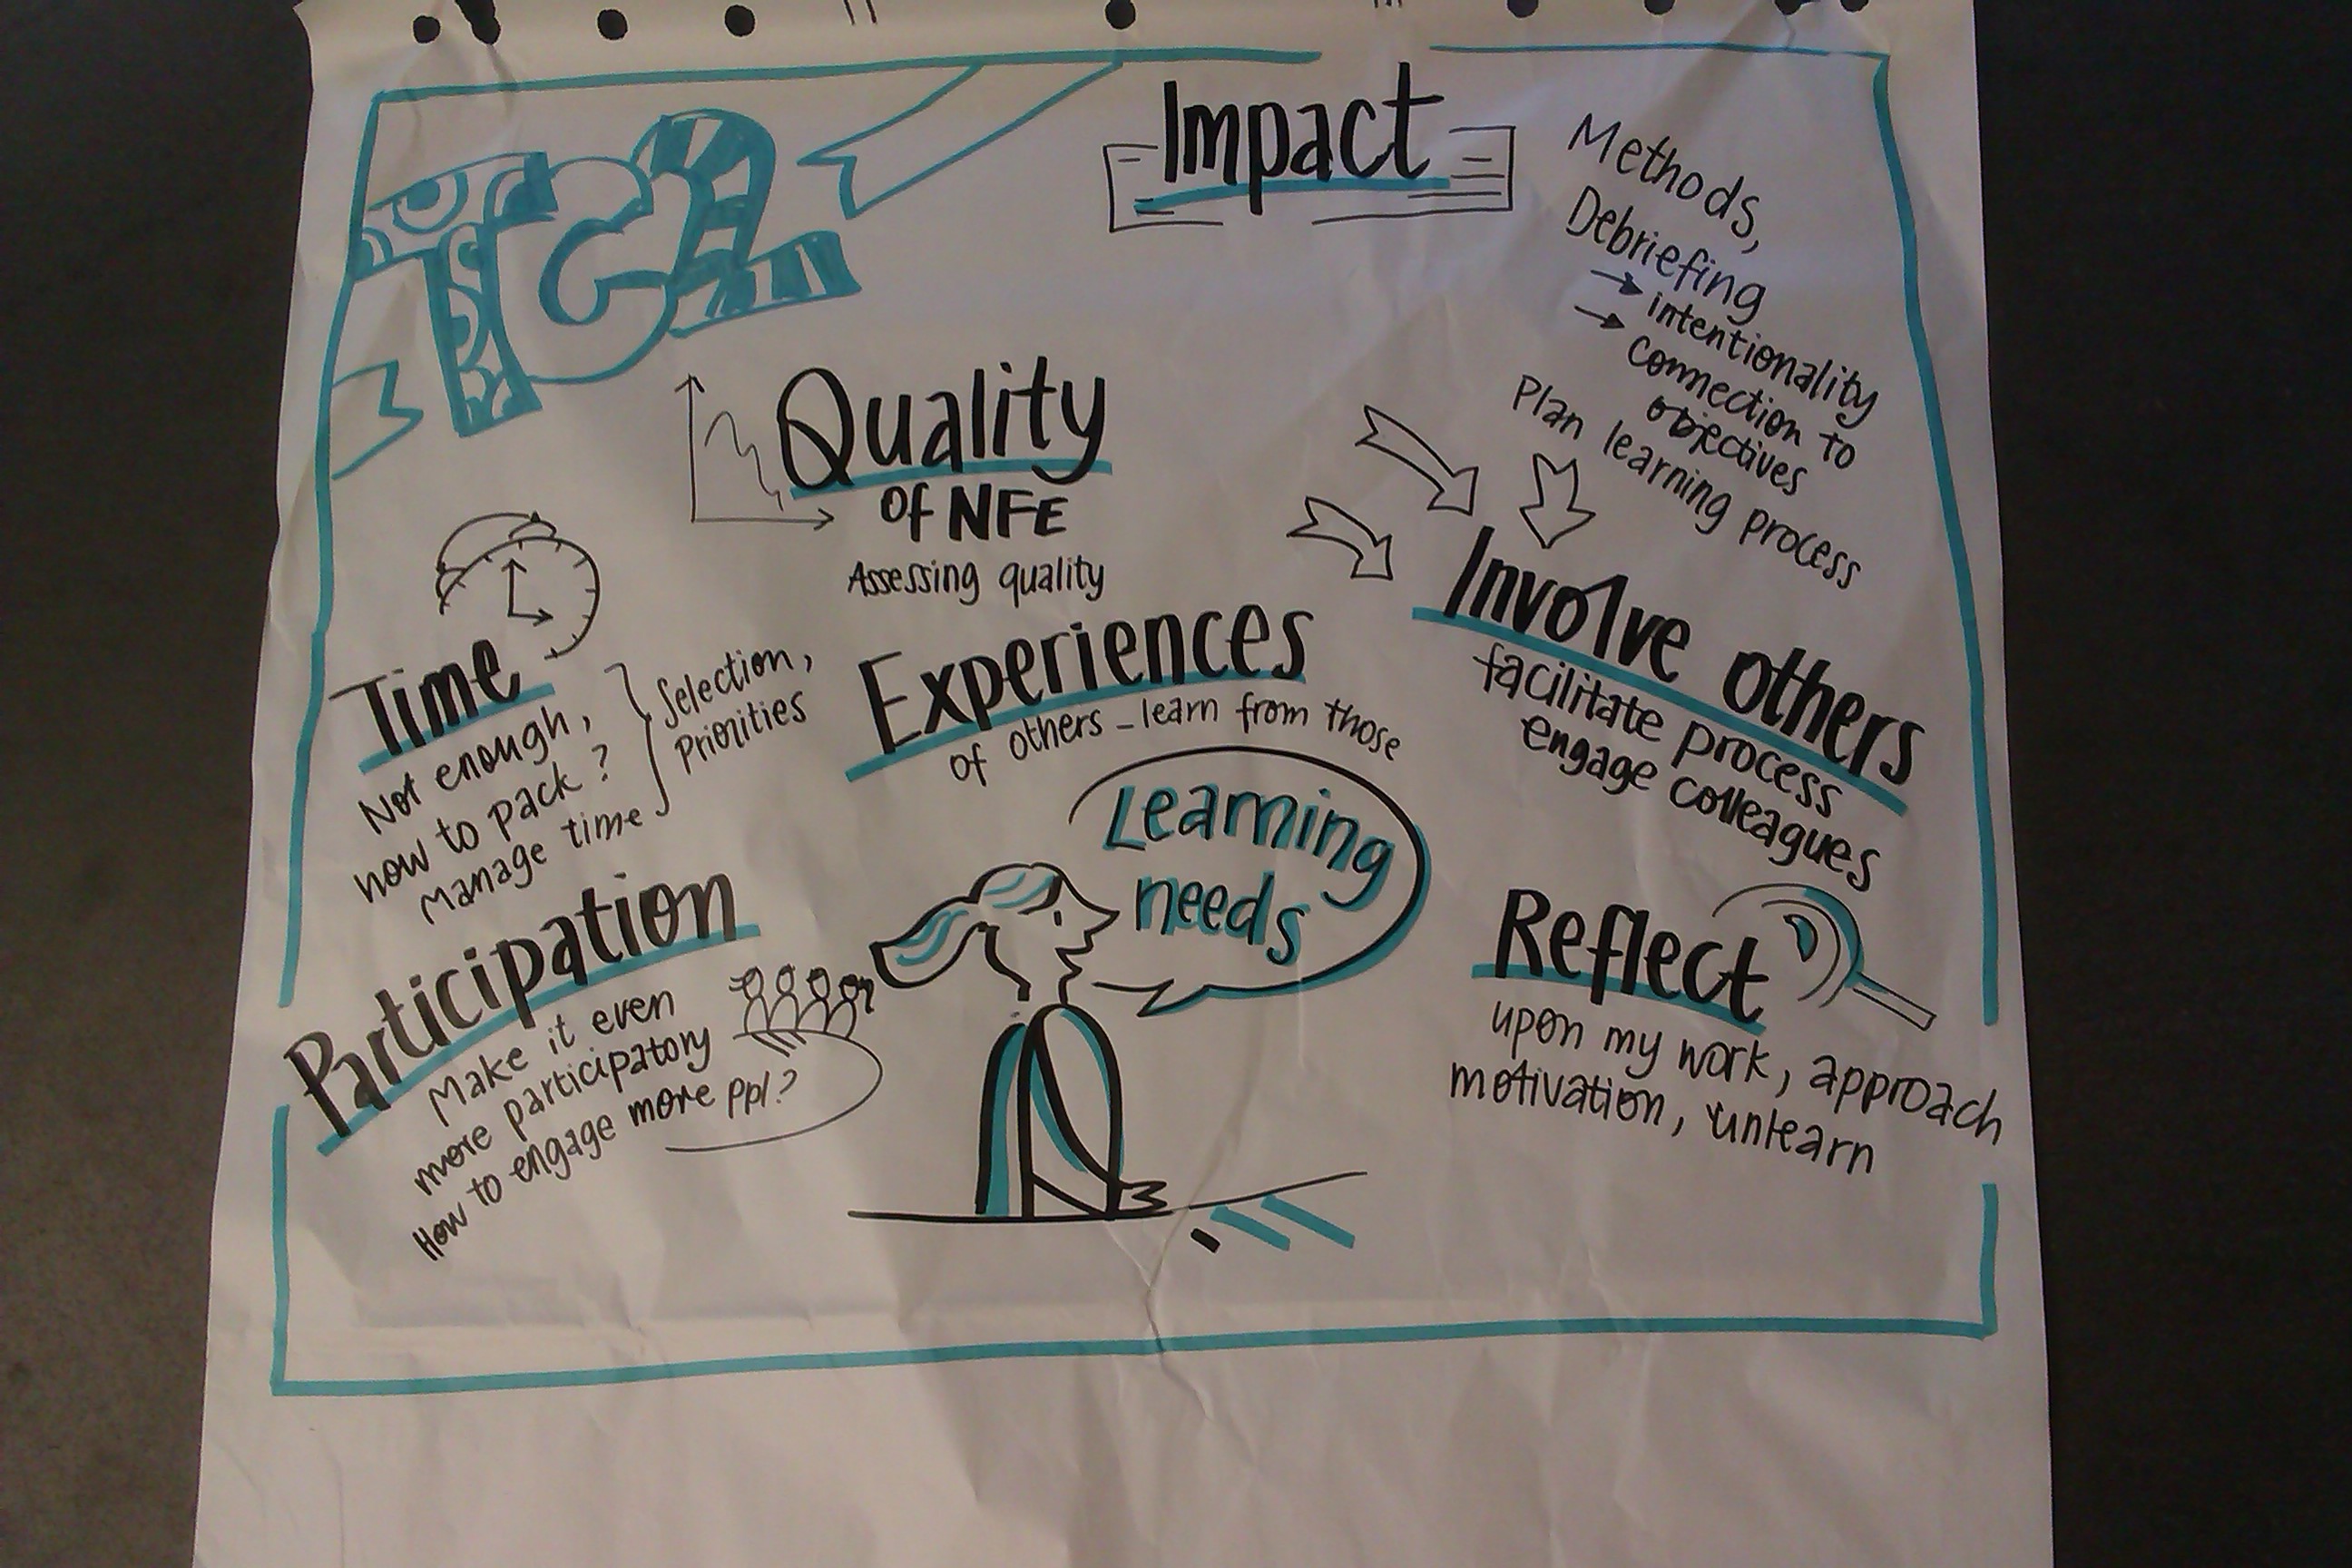 TG2
Impact
Methods,
Debriefing
→ intentionality
→ connection to
objectives
Plan learning process
Quality
of NFE
Assessing quality
Time
Not enough,
how to pack?
Manage time
Selection,
Priorities
Experiences
of others - learn from those
Involve others
facilitate process
engage colleagues
Learning
needs
Participation
Make it even
more participatory
How to engage more ppl?
Reflect
upon my work, approach
motivation, unlearn